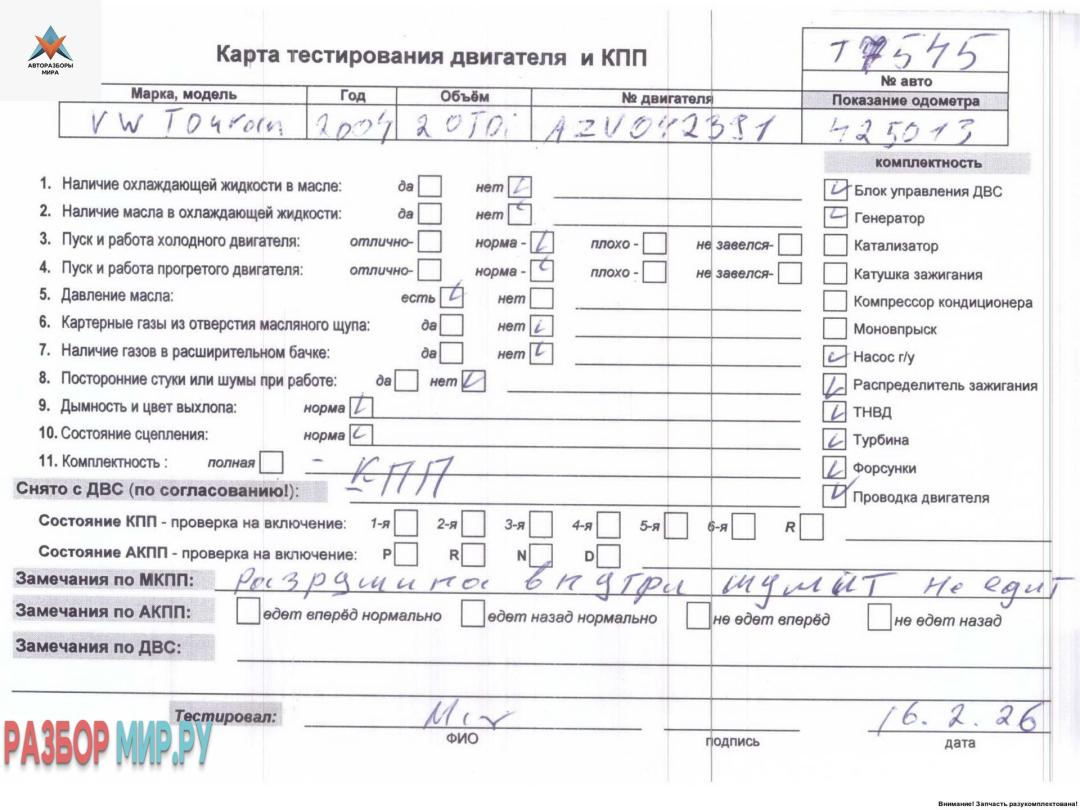 АВТОРАЗБОРЫ
МИРА
Карта тестирования двигателя и КПП
Т7545
№ авто
Марка, модель Год Объём № двигателя Показание одометра
VW Touran 2004 20TDi AZV042391 425013
комплектность
1. Наличие охлаждающей жидкости в масле: да нет
Блок управления ДВС
2. Наличие масла в охлаждающей жидкости: да нет
Генератор
3. Пуск и работа холодного двигателя: отлично- норма - плохо - не завелся-
Катализатор
4. Пуск и работа прогретого двигателя: отлично- норма - плохо - не завелся-
Катушка зажигания
5. Давление масла: есть нет
Компрессор кондиционера
6. Картерные газы из отверстия масляного щупа: да нет
Моновпрыск
7. Наличие газов в расширительном бачке: да нет
Насос г/у
8. Посторонние стуки или шумы при работе: да нет
Распределитель зажигания
9. Дымность и цвет выхлопа: норма
ТНВД
10. Состояние сцепления: норма
Турбина
11. Комплектность : полная - КПП
Форсунки
Снято с ДВС (по согласованию!):
Проводка двигателя
Состояние КПП - проверка на включение: 1-я 2-я 3-я 4-я 5-я 6-я R
Состояние АКПП - проверка на включение: P R N D
Замечания по МКПП: Разрушина внутри шумит не едит
Замечания по АКПП: едет вперёд нормально едет назад нормально не едет вперёд не едет назад
Замечания по ДВС:
Тестировал: 16.2.26
ФИО подпись дата
РАЗБОРМИР.РУ
Внимание! Запчасть разукомплектована!